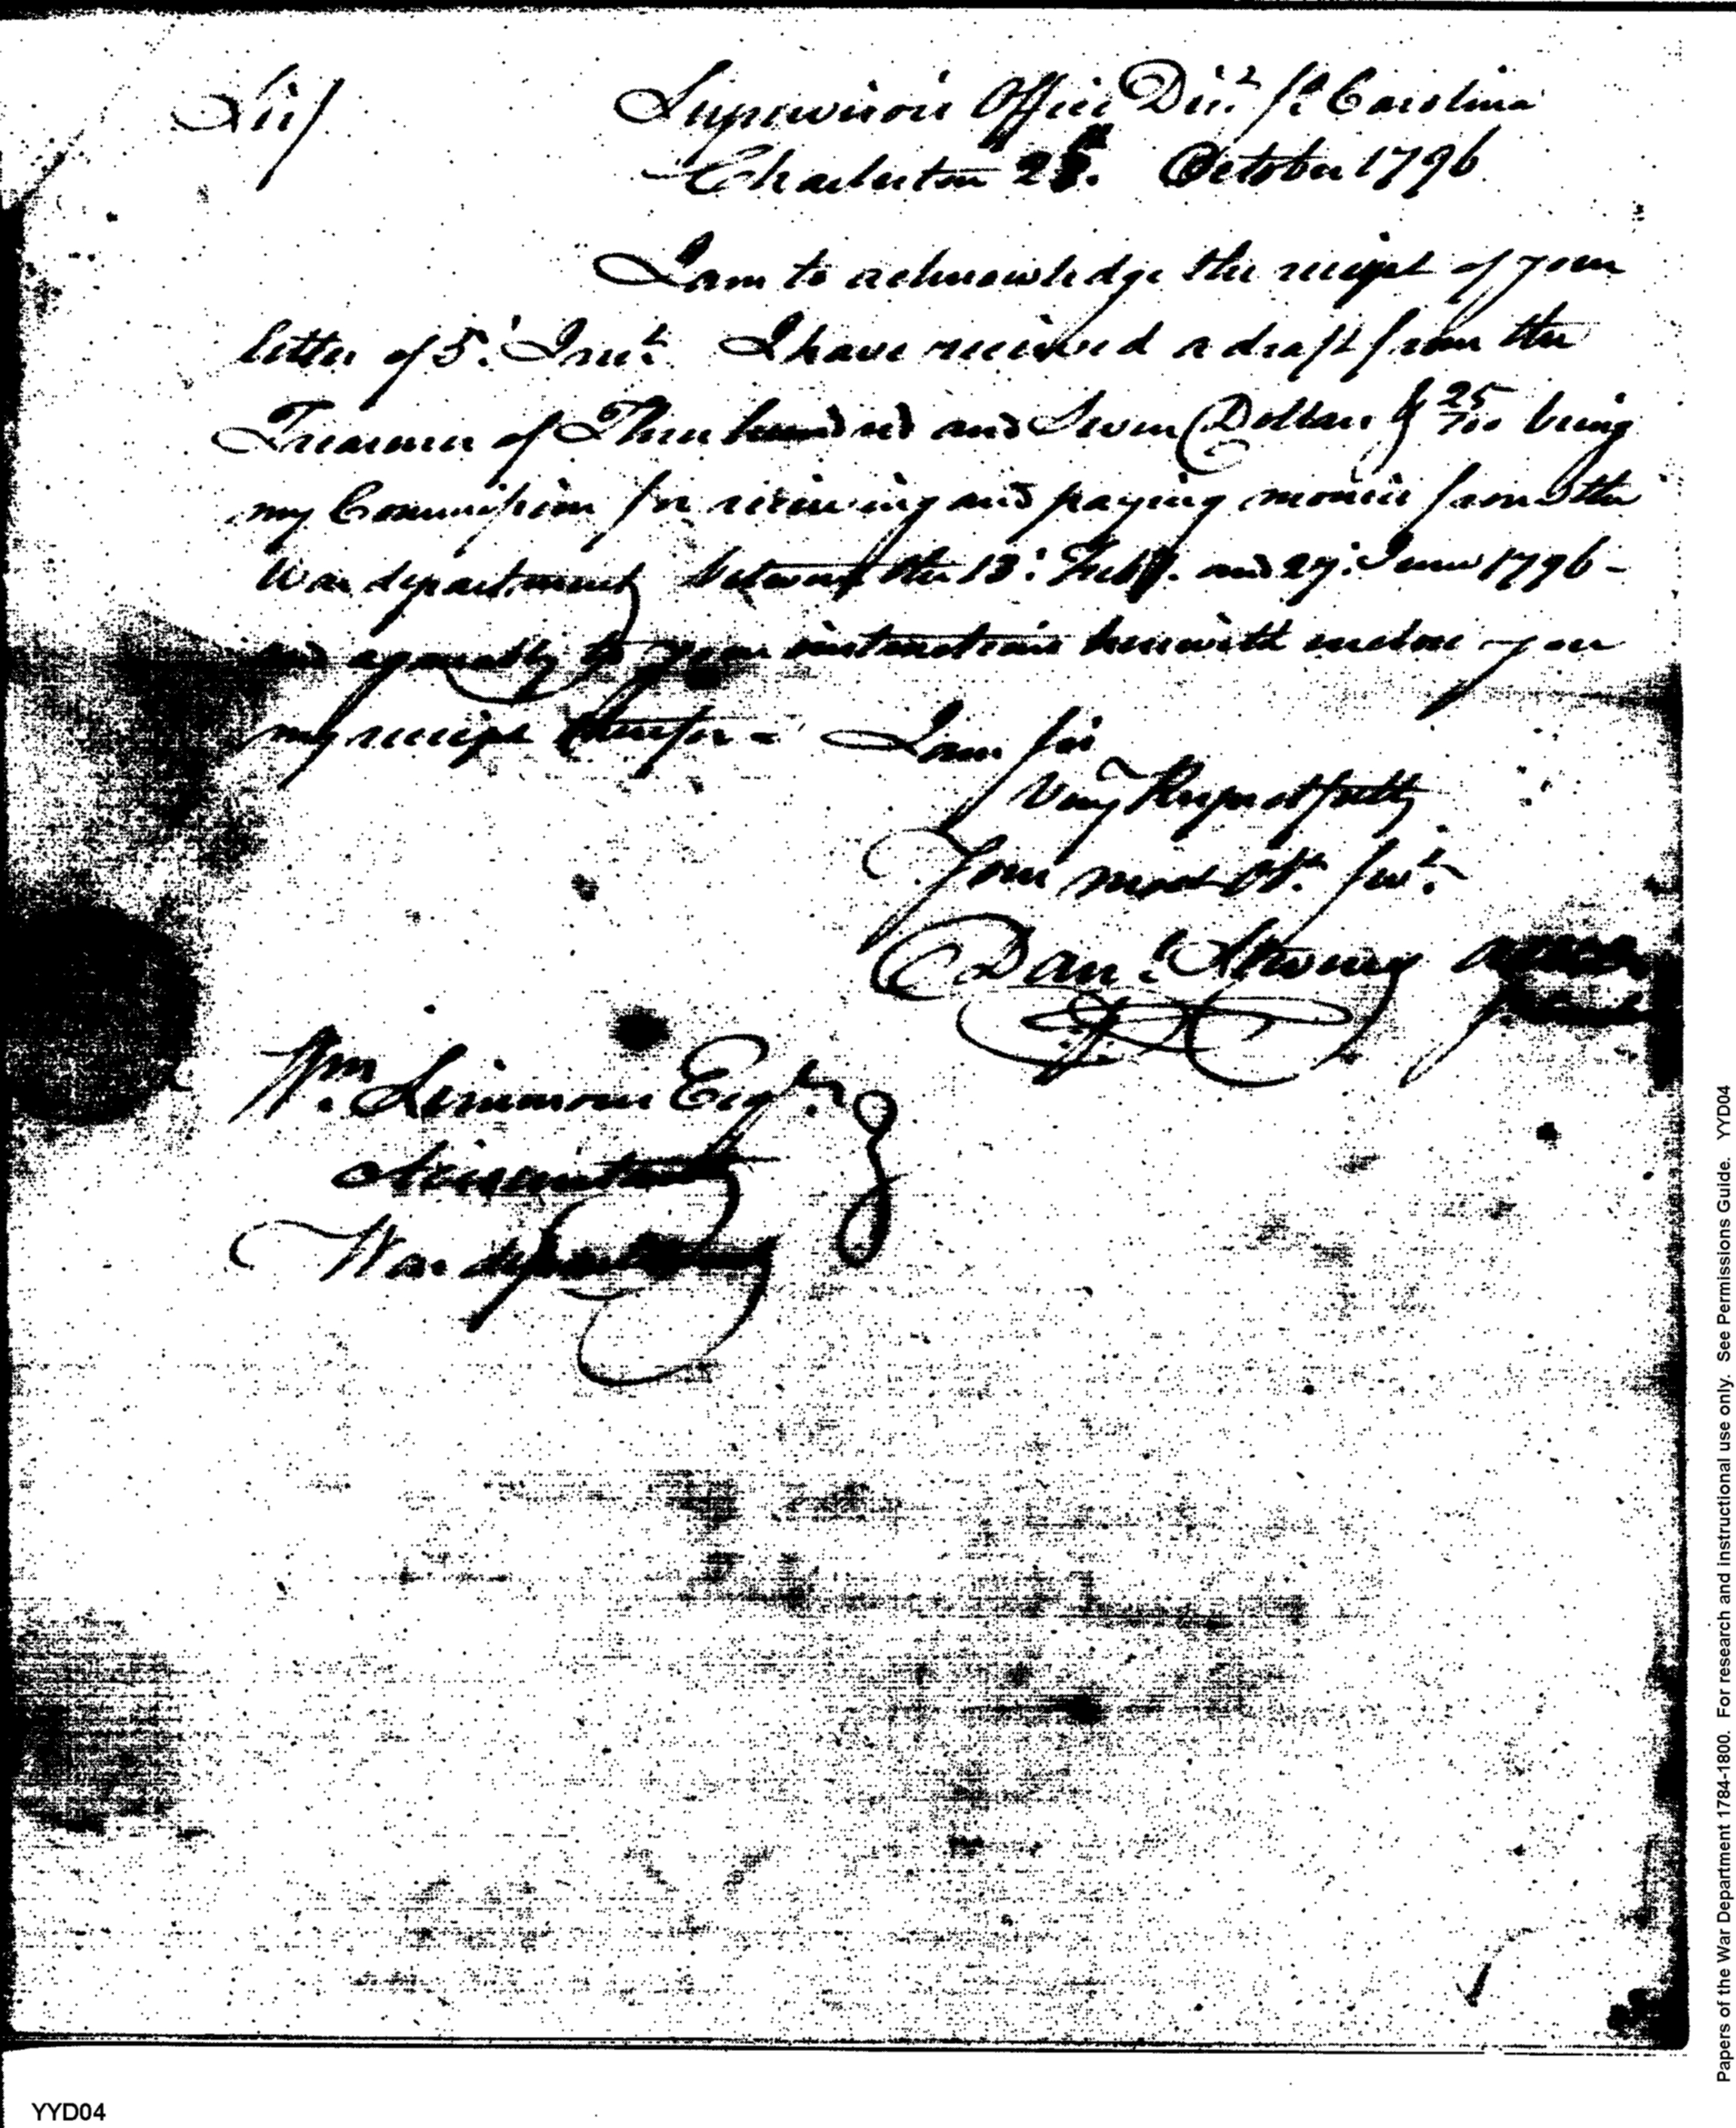 Sir/
Supervisors Office Dist. So. Carolina
Charleston 28. October 1796
I am to acknowledge the receipt of your
letter of 5. Inst. I have received a draft from the
Treasurer of Three hundred and Seven Dollars & 25/100 being
my Commission for receiving and paying monies from the
War department between the 13. Feby. and 27. June 1796 -
and agreeably to your instructions herewith enclose you
my receipt therefor - I am Sir
Very Respectfully
Your most Ob. Sert.
Danl. Stevens
Wm. Simmons Esqr.
Accountant
War department
YYD04
Papers of the War Department 1784-1800. For research and instructional use only. See Permissions Guide. YYD04